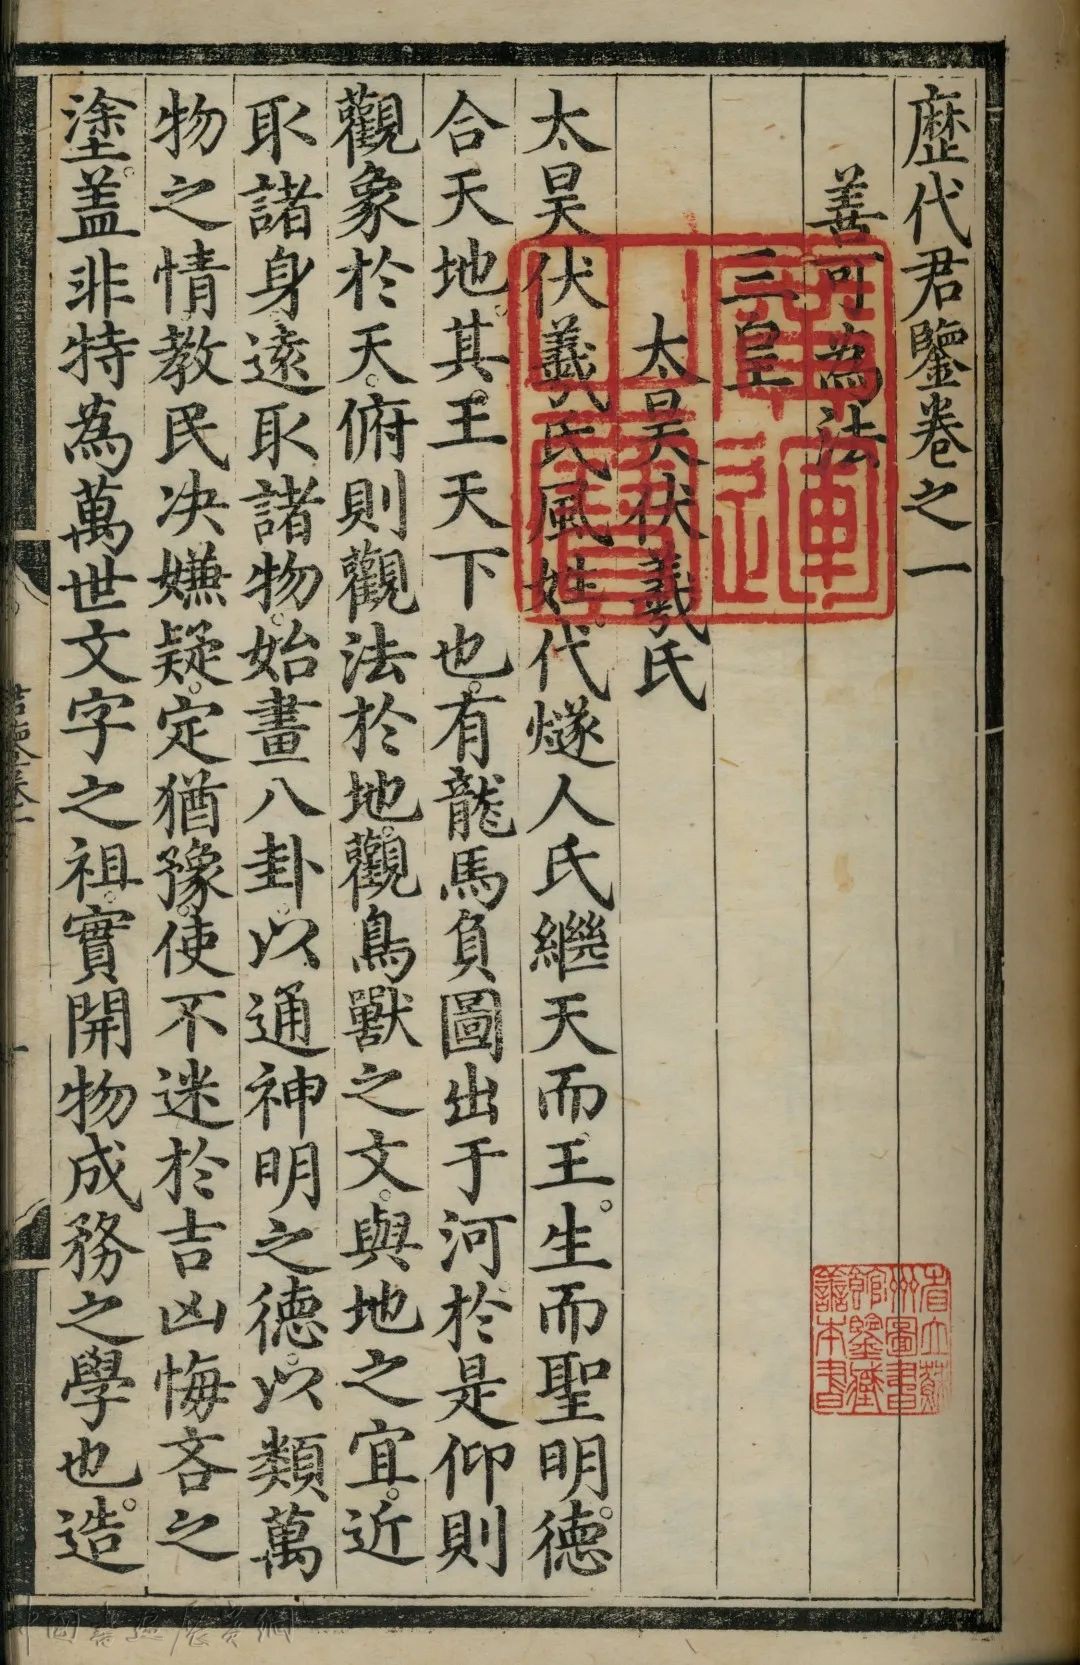 歷代君鑒卷之一
善可為法
三皇
太昊伏羲氏
太昊伏羲氏風姓代燧人氏繼天而王生而聖明德
合天地其王天下也有龍馬負圖出于河於是仰則
觀象於天俯則觀法於地觀鳥獸之文與地之宜近
取諸身遠取諸物始畫八卦以通神明之德以類萬
物之情教民決嫌疑定猶豫使不迷於吉凶悔吝之
塗蓋非特為萬世文字之祖實開物成務之學也造
廣運之寶
省立蘇
州圖書
館鑒藏
善本書